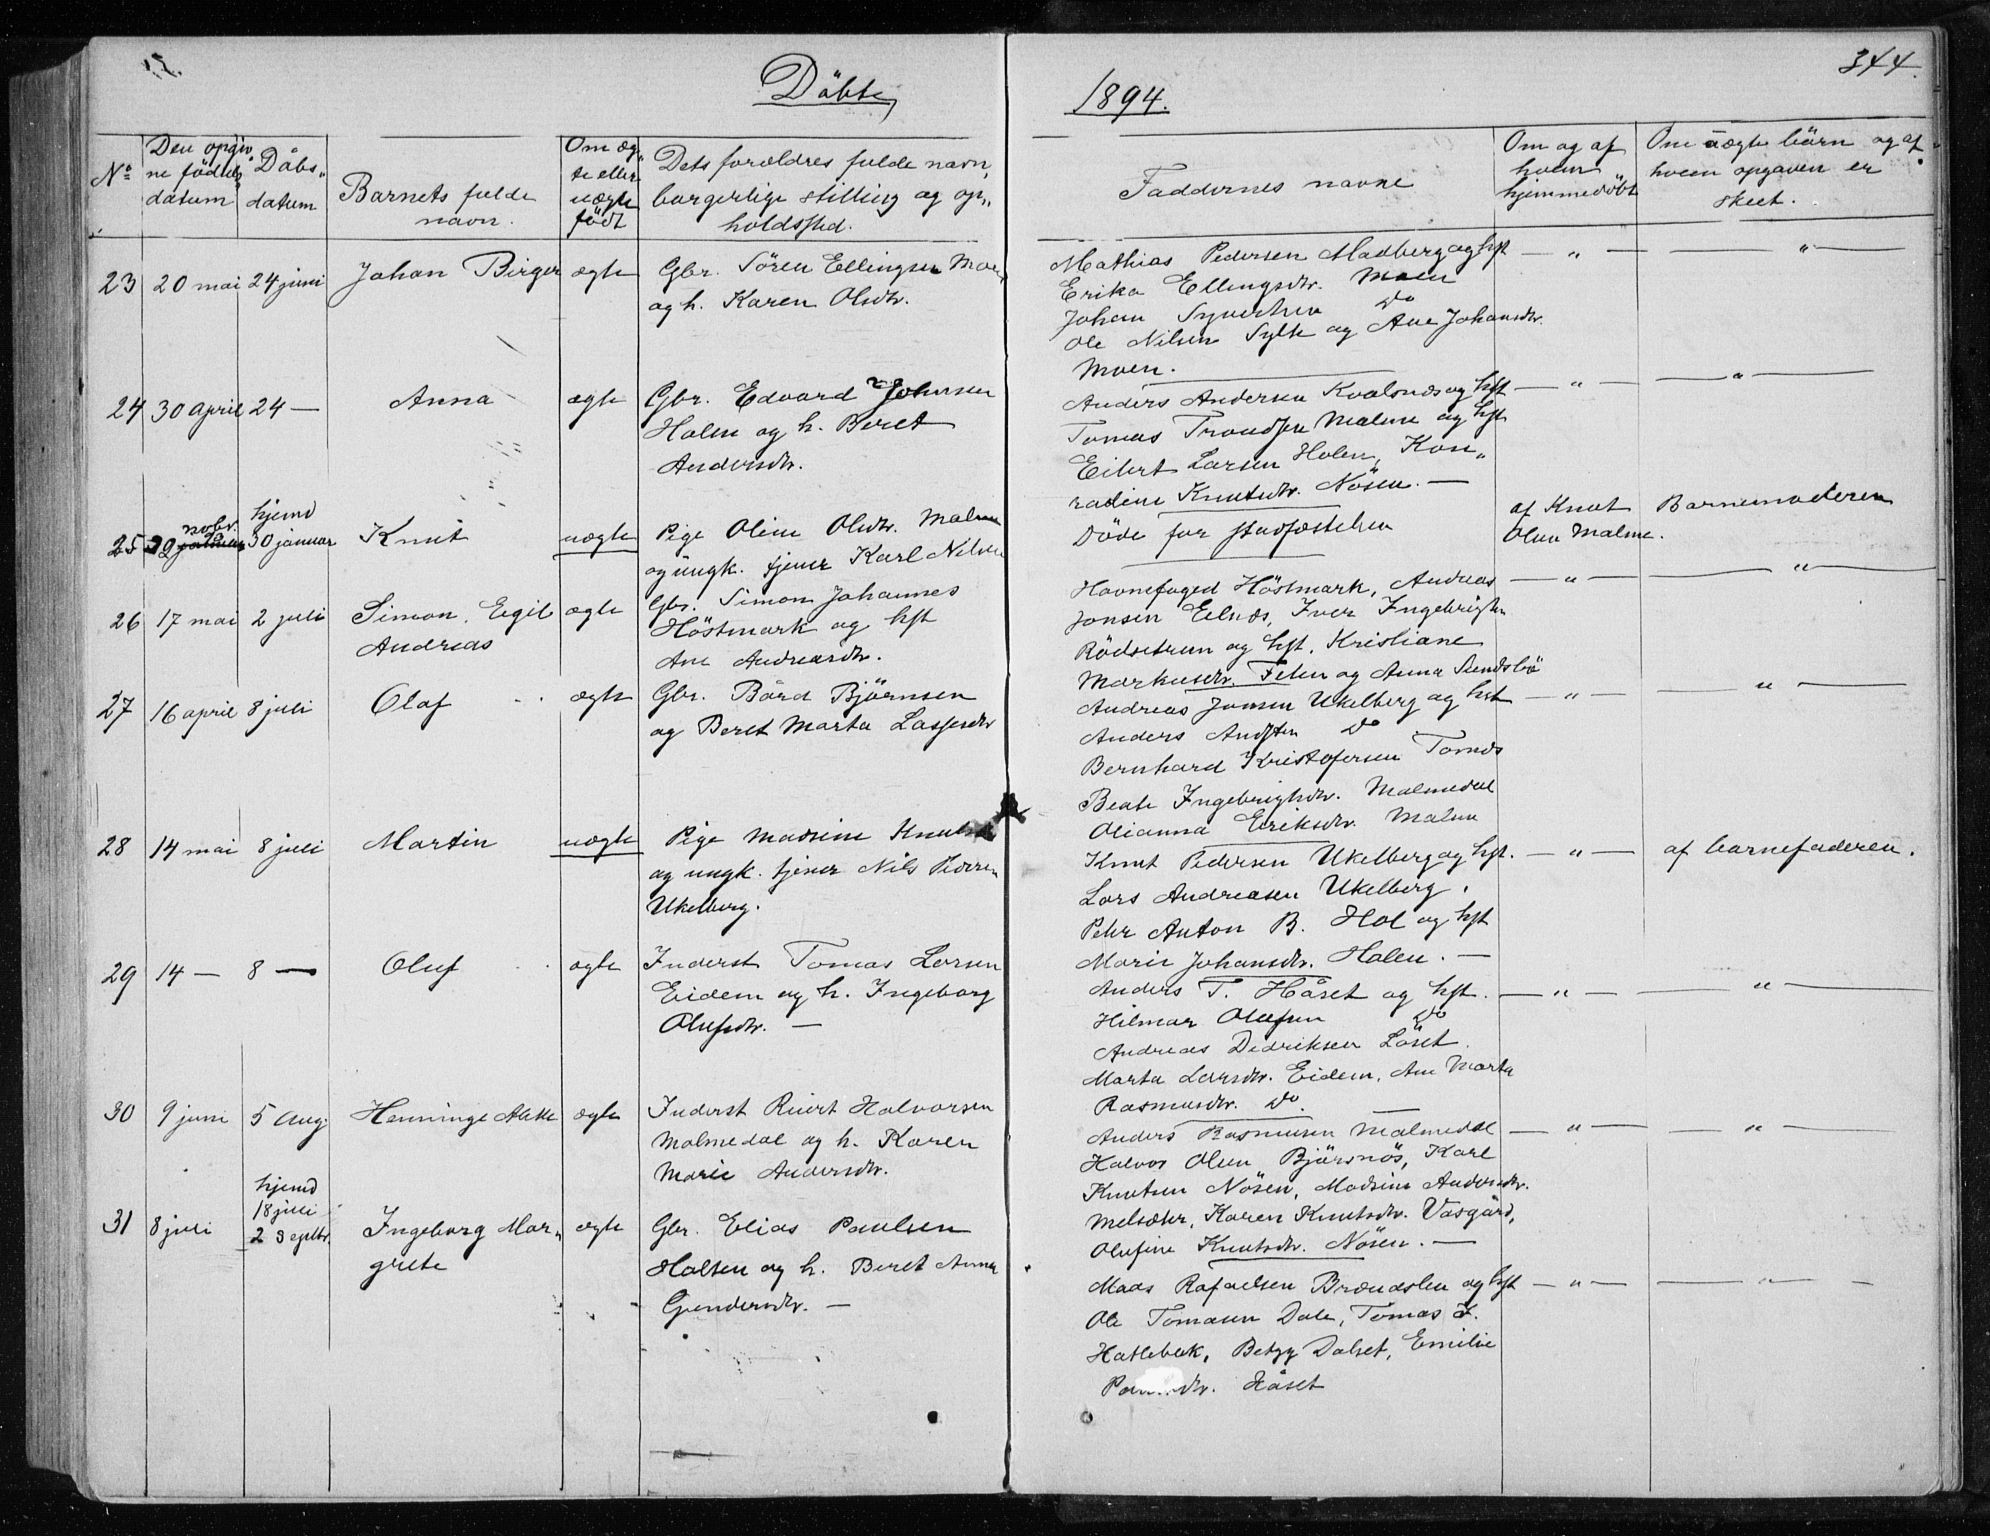 344.
Döbte
1894.
No
Den opgiv
ne föd
datum
Dåbs
datum
Barnets fulde
navn.
Om æg
te eller
uægte
födt
Dets forældres fulde navn,
borgerlige stilling og op
holdssted.
Faddernes navne
Om og af
hvem
hjemmedöbt
Om uægte börn og af
hvem opgaven er
skeet.
23 20 mai 24 juni Johan Birger ægte
Gbr. Sören Ellingsen Moen
og h. Karen Olsdtr.
Mathias Pedersen Madberg og hst — „ — — „ —
Erika Ellingsdtr. Moen
Johan Syversen Do
Ole Nilsen Sylte og Ane Johansdtr.
Moen.
24 30 april 24 — Anna ægte
Gbr. Edvard Johnsen
Holen og h. Beret
Andersdtr.
Anders Andersen Kvalsnes og hst — „ — — „ —
Tomas Trondsen Malme og hst
Eilert Larsen Holen, Kon„
radine Knutsdtr. Nösen. —
25 novbr. hjemd 30 januar Knut uægte
Pige Oline Olsdtr. Malme
og ungk. tjener Karl Nilsen
Döde for stadfæstelsen
af Knut
Olsen Malme.
Barnemoderen
26 17 mai 2 juli Simon Egil
Andreas
ægte
Gbr. Simon Johannes
Höstmark og hst
Ane Andreasdtr.
Havnefoged Höstmark, Andreas — „ — — „ —
Jonsen Eilnes, Iver Ingebrigtsen
Rödsetrem og hst, Kristiane
Markusdtr. Felen og Anna Sundsbö
27 16 april 8 juli Olaf ægte
Gbr. Bård Björnsen
og Beret Marta Lassesdtr
Andreas Jonsen Ukelberg og hst — „ — — „ —
Anders Do
Bernhard Kristofersen Tornes
Beate Ingebrigtsdtr. Malmedal
Olianna Eriksdtr. Malme
28 14 mai 8 juli Martin uægte
Pige Madsine
og ungk. tjener Nils Pedersen
Ukelberg.
Knut Pedersen Ukelberg og hst. — „ — af barnefaderen.
Lars Andreasen Ukelberg.
Peder Anton B. Hol og hst
Marie Johansdtr. Holen. —
29 14 — 8 — Oluf ægte
Inderst Tomas Larsen
Eidem og h. Ingeborg
Olufsdtr. —
Anders T. Håset og hst. — „ — — „ —
Hilmar Olufsen Do
Andreas Dedriksen Löset.
Marta Larsdtr. Eidem, Ane Marta
Rasmusdtr. Do. —
30 9 juni 5 Aug. Henninge ægte
Inderst Halvorsen
Malmedal og h. Karen
Marie Andersdtr.
Anders Rasmusen Malmedal — „ — — „ —
Halvor Olsen Björsnös, Karl
Knutsen Nösen, Madsine Andersdtr.
Melsæter, Karen Knutsdtr. Vasgård,
Olufine Knutsdtr. Nösen. —
31 8 juli hjemd
18 juli
2 Septbr.
Ingeborg Mar„
grete
ægte
Gbr. Elias Paulsen
Holsen og h. Beret Anna
Gundersdtr. —
Mads Rafaelsen Brændslen og hst — „ — — „ —
Ole Tomasen Dale, Tomas J.
Hatlebæk, Betzy Dalset, Emilie
Håset